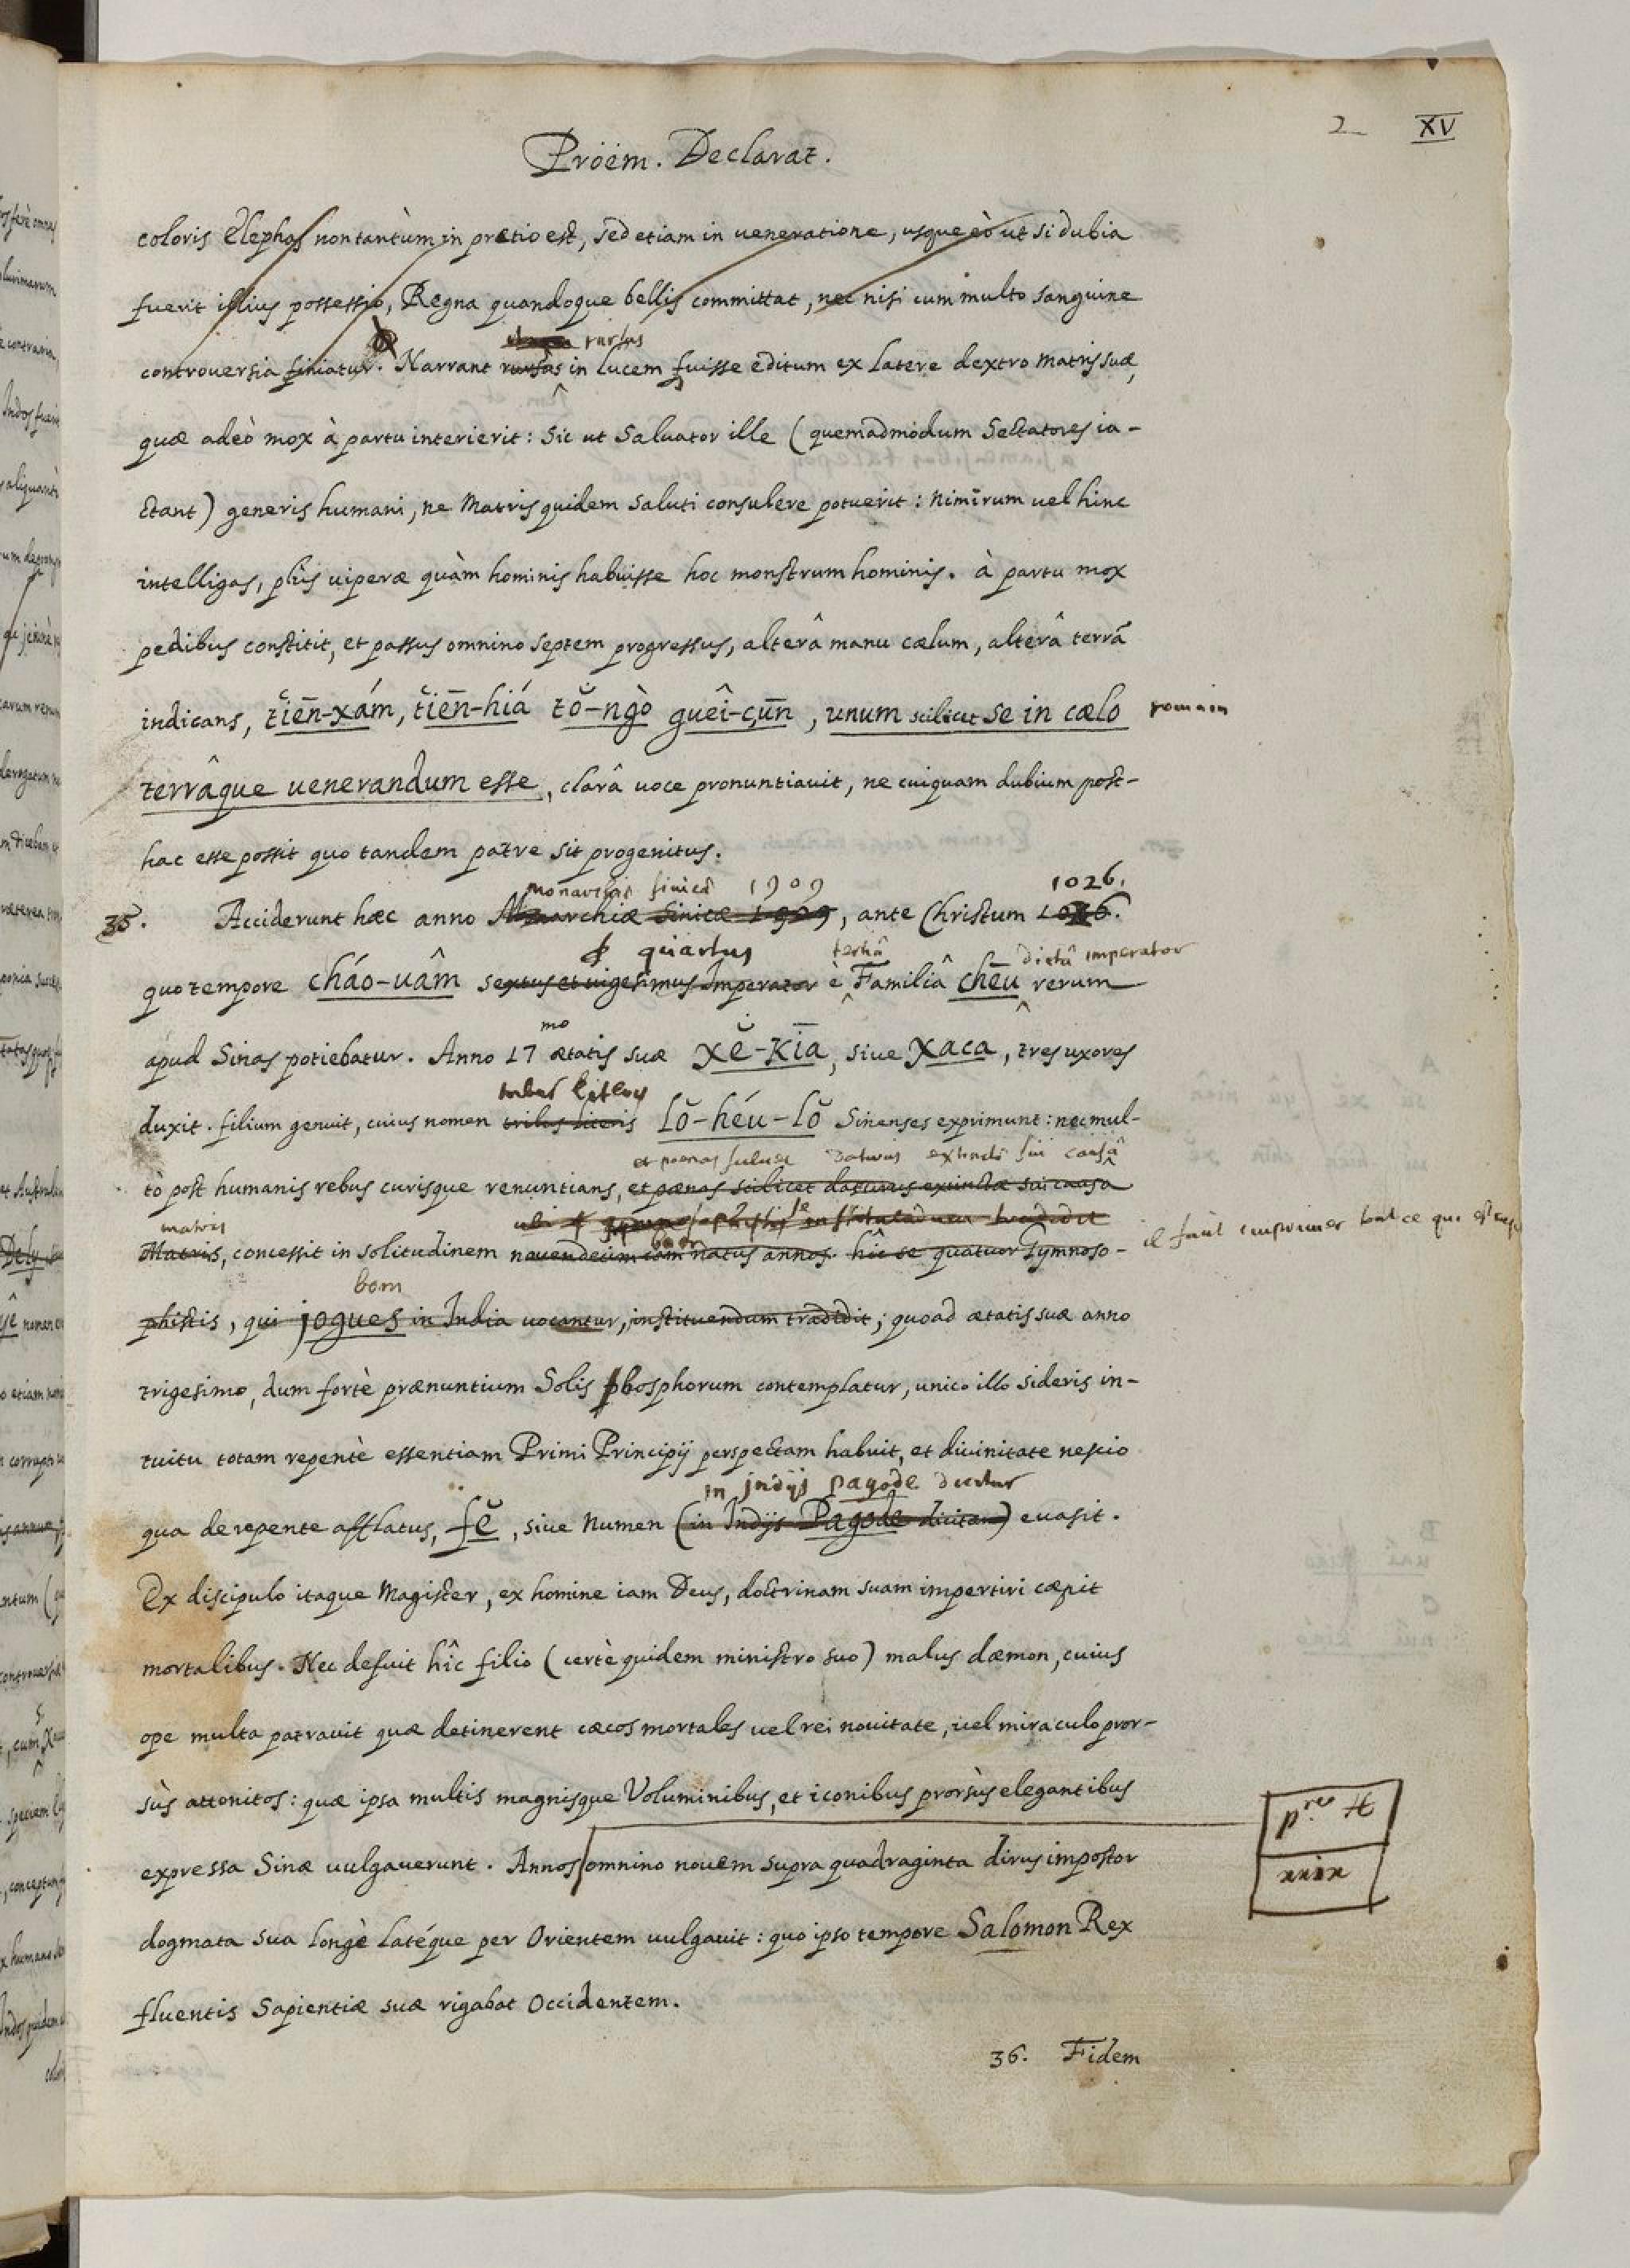 2 XV
Pröëm. Declarat.
coloris Elephas non tantùm in pretio est, sed etiam in ueneratione, usque èo ut si dubia
fuerit illius possessio, Regna quandoque bellis committat, nec nisi cum multo sanguine
rursus
controuersia finiatur. Narrant rursus in lucem fuisse editum ex latere dextro matris suæ,
quæ adeò mox à partu interierit: sic ut Saluator ille (quemadmodum Sectatores ia-
ctant) generis humani, ne Matris quidem saluti consulere potuerit: nimirum uel hinc
intelligas, plùs uiperæ quàm hominis habuisse hoc monstrum hominis. à partu mox
pedibus constitit, et passus omnino septem progressus, alterâ manu cælum, alterâ terrã
indicans, tiēn-xám, tiēn-hiá tŏ-ngò guêi-çūn, unum scilicet se in cælo romain
terrâque uenerandum esse, clarâ uoce pronuntiauit, ne cuiquam dubium post-
hac esse possit quo tandem patre sit progenitus.
monarchiæ sinicæ 1909 1026.
35. Acciderunt hæc anno Monarchiæ Sinicæ 1909, ante Christum 1026.
quartus tertiâ dictâ imperator
quo tempore cháo-uâm sextus et uigesimus Imperator è Familiâ chēu rerum
apud Sinas potiebatur. Anno 17mo ætatis suæ xĕ-kīa, siue xaca, tres uxores
duxit. filium genuit, cuius nomen tribus literis lŏ-héu-lŏ Sinenses exprimunt: nec mul-
et poenas scilicet daturus extinctæ sui causâ
tò post humanis rebus curisque renuntians, et pænas scilicet daturus extinctæ sui causa
matris
Matris, concessit in solitudinem nouendecim iam natus annos. hîc se quatuor Gymnoso- il faut imprimer tout ce qui est
bom
phistis, qui jogues in India uocantur, instituendum tradidit; quoad ætatis suæ anno
trigesimo, dum fortè prænuntium Solis phosphorum contemplatur, unico illo sideris in-
tuitu totam repentè essentiam Primi Principij perspectam habuit, et diuinitate nescio
in jndijs pagode
qua derepente afflatus, fĕ, siue Numen (in Indijs Pagode dicitam) euasit.
Ex discipulo itaque Magister, ex homine iam Deus, doctrinam suam impertiri cæpit
mortalibus. Nec defuit hîc filio (certè quidem ministro suo) malus dæmon, cuius
ope multa patrauit quæ detinerent cæcos mortales uel rei nouitate, uel miraculo pror-
sùs attonitos: quæ ipsa multis magnisque Voluminibus, et iconibus prorsùs elegantibus
expressa Sinæ uulgauerunt. Annos omnino nouem supra quadraginta dirus impostor
xxix
dogmata sua longè latéque per Orientem uulgauit: quo ipso tempore Salomon Rex
fluentis Sapientiæ suæ rigabat Occidentem.
36. Fidem